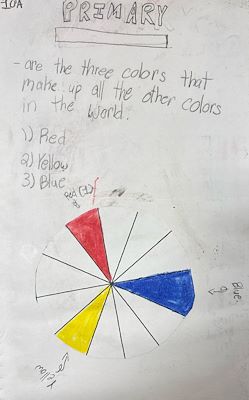 10A
PRIMARY
- are the three colors that
make up all the other colors
in the world.
1) Red
2) Yellow
3) Blue
Blue
Yellow